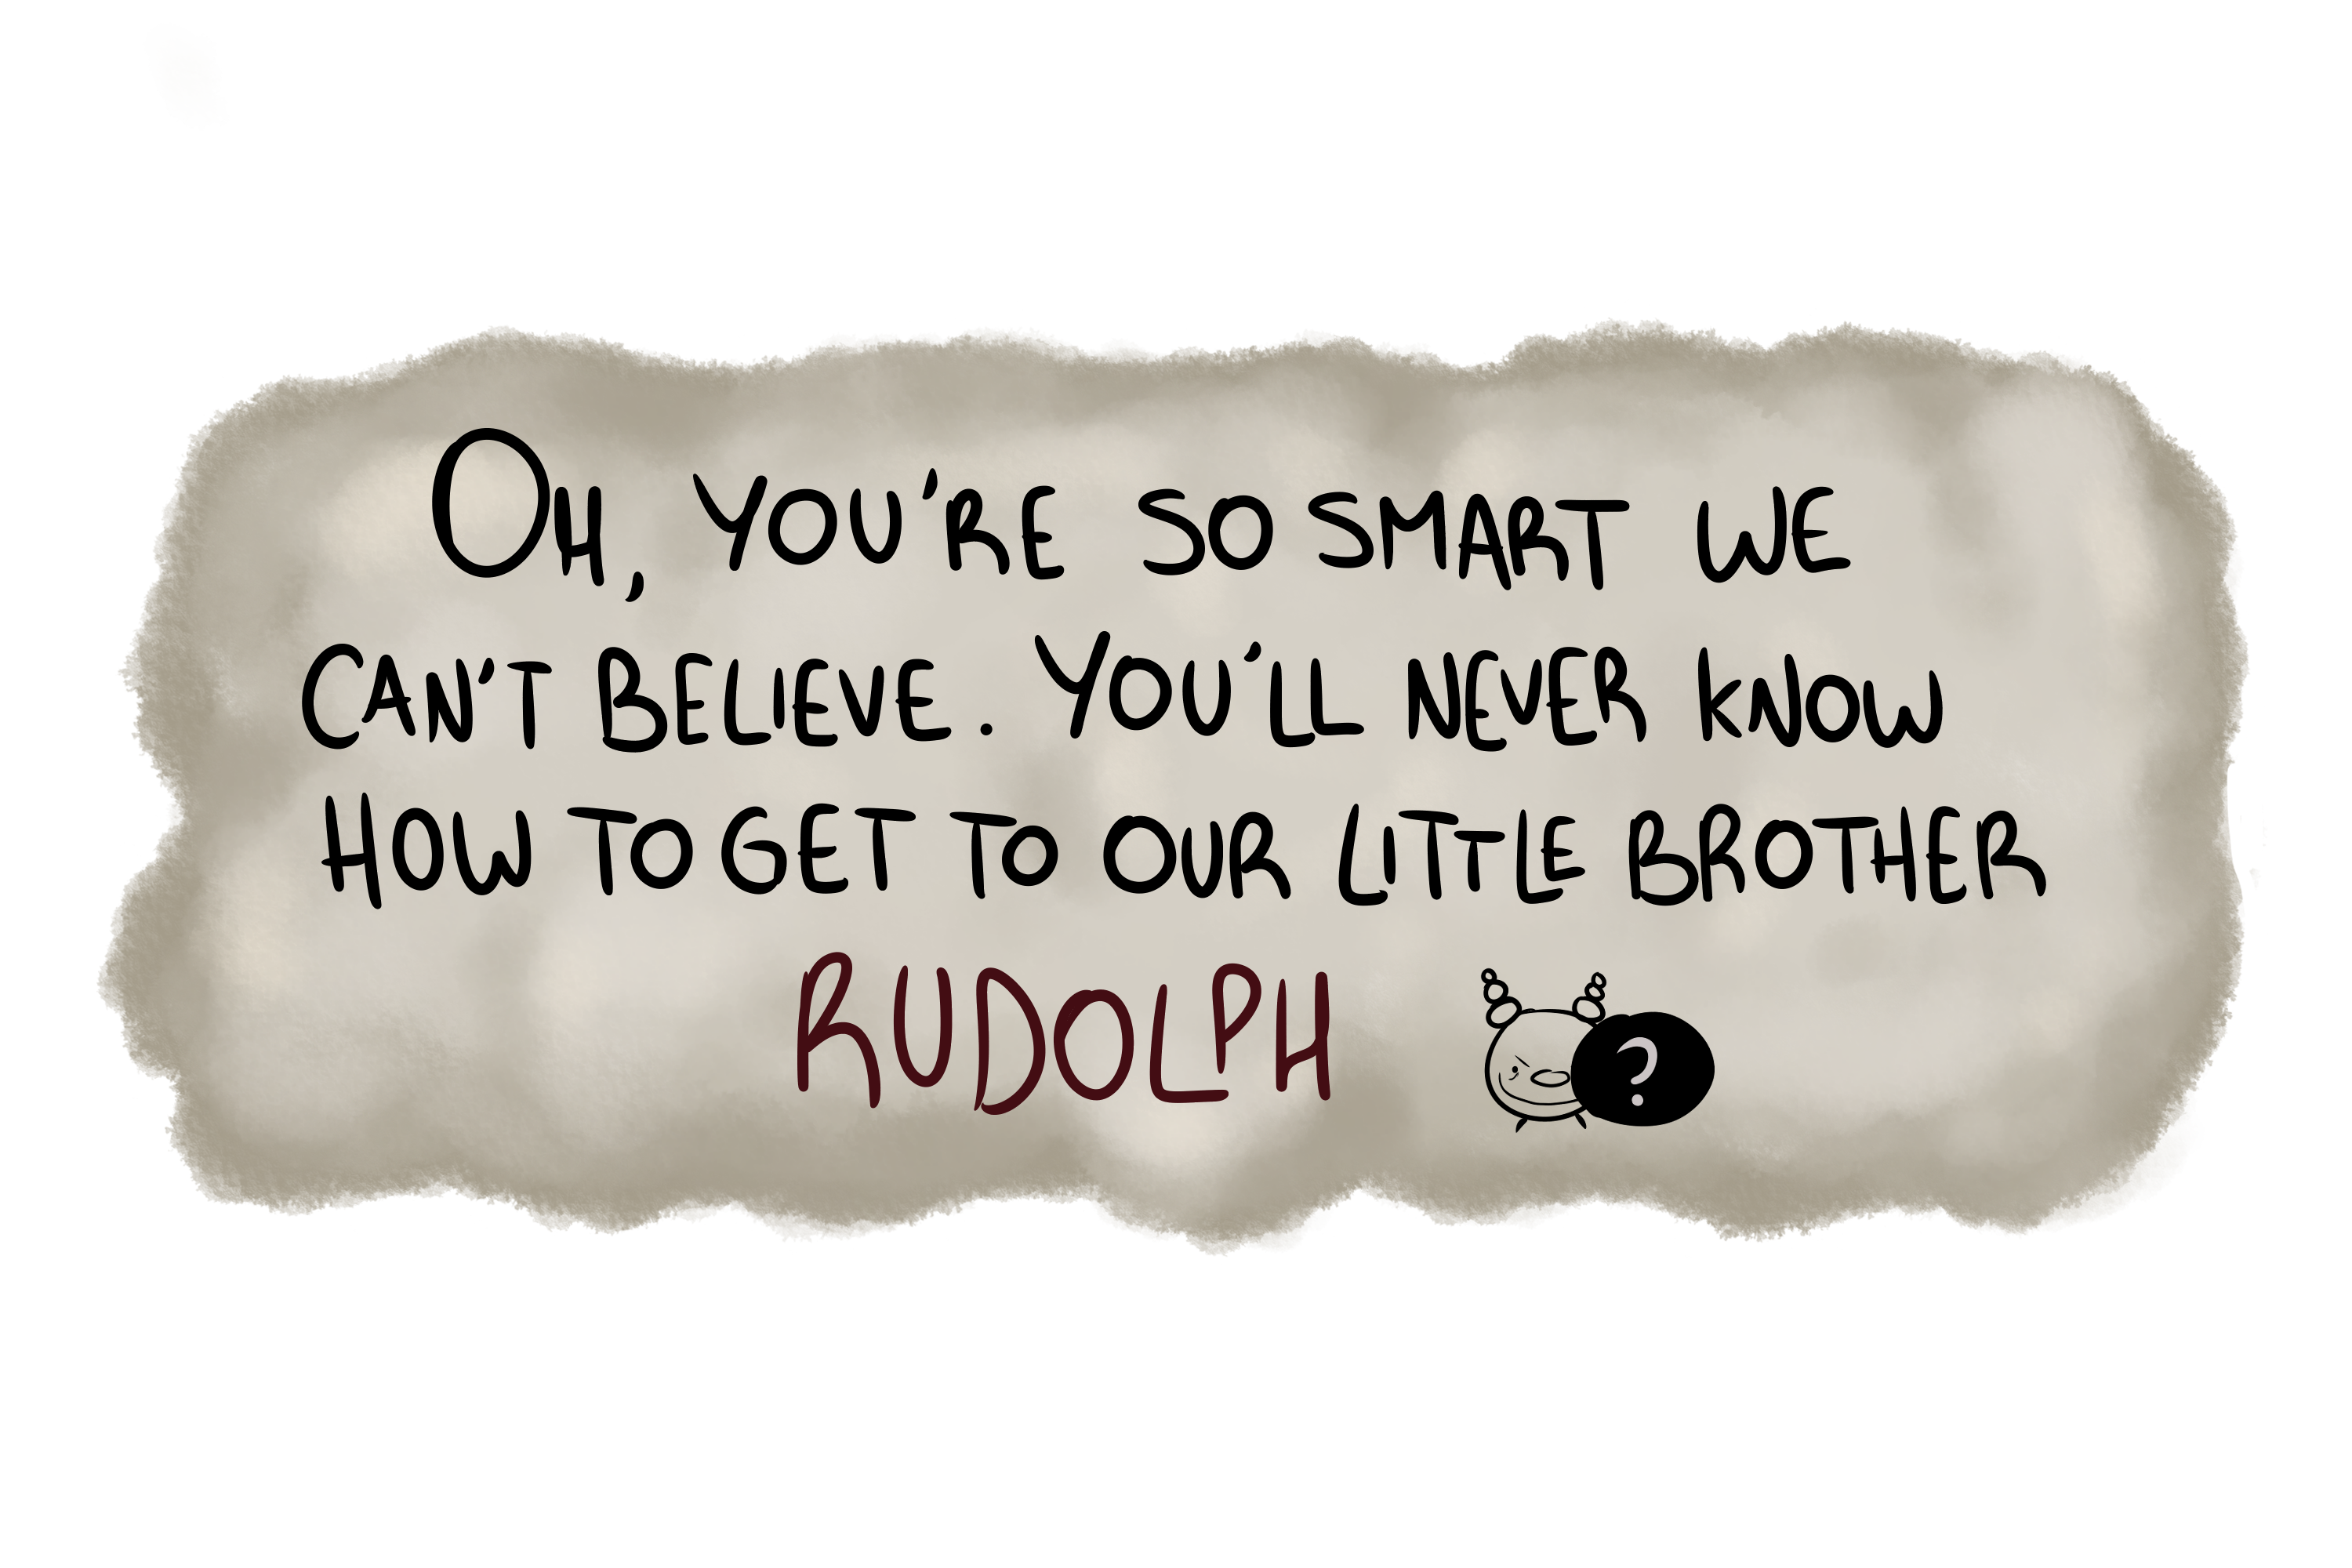 OH, YOU'RE SO SMART WE
CAN'T BELIEVE. YOU'LL NEVER KNOW
HOW TO GET TO OUR LITTLE BROTHER
RUDOLPH
?